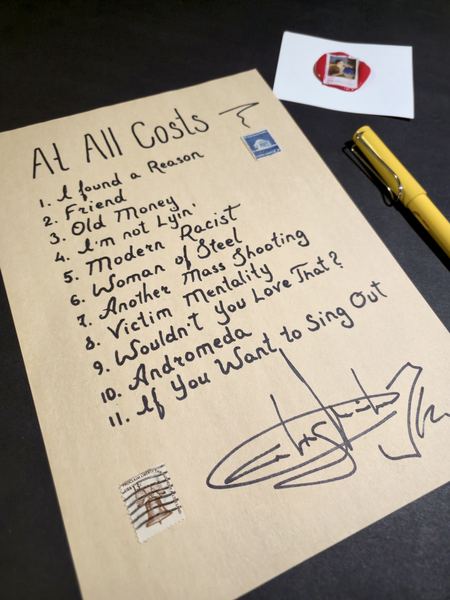 At All Costs
1. I found a Reason
2. Friend
3. Old Money
4. I'm not Lyin'
5. Modern Racist
6. Woman of Steel
7. Another Mass Shooting
8. Victim Mentality
9. Wouldn't You Love That?
10. Andromeda
11. If You Want to Sing Out